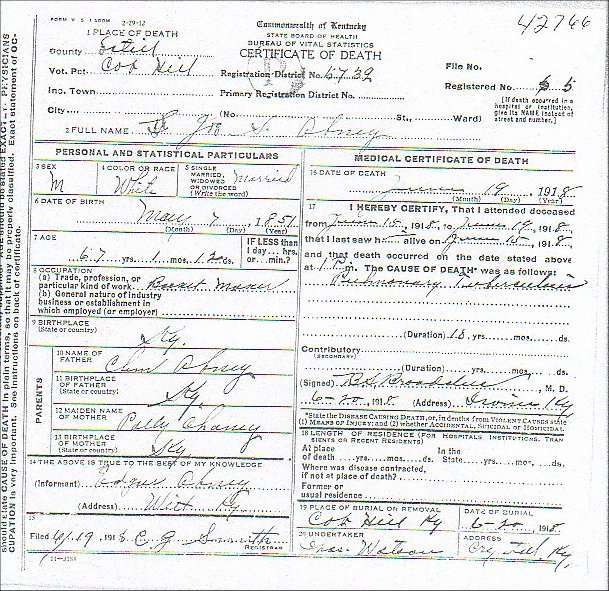 FORM V. S. 1 100M 2-29-12
42766
Commonwealth of Kentucky
STATE BOARD OF HEALTH
BUREAU OF VITAL STATISTICS
CERTIFICATE OF DEATH
1 PLACE OF DEATH
County Estill
Vot. Pct. Cob Hill
Inc. Town
City (No. St., Ward)
Registration District No.
Primary Registration District No.
File No.
Registered No. 5
[If death occurred in a hospital or institution, give its NAME instead of street and number.]
2 FULL NAME Abney
PERSONAL AND STATISTICAL PARTICULARS
3 SEX M
4 COLOR OR RACE White
5 SINGLE MARRIED, WIDOWED OR DIVORCED (Write the word) Married
6 DATE OF BIRTH May 7, 1851
(Month) (Day) (Year)
7 AGE 67 yrs. 1 mos. 12 ds.
IF LESS than 1 day... hrs. or... min.?
8 OCCUPATION
(a) Trade, profession, or particular kind of work Basket Maker
(b) General nature of industry business or establishment in which employed (or employer)
9 BIRTHPLACE (State or country) Ky.
PARENTS
10 NAME OF FATHER Abney
11 BIRTHPLACE OF FATHER (State or country) Ky
12 MAIDEN NAME OF MOTHER Polly Chaney
13 BIRTHPLACE OF MOTHER (State or country) Ky
14 THE ABOVE IS TRUE TO THE BEST OF MY KNOWLEDGE
(Informant) Abney
(Address) Witt Ky
15
Filed 6/19 1918 C. G. Smith
REGISTRAR
11-3184
MEDICAL CERTIFICATE OF DEATH
16 DATE OF DEATH June 19, 1918
(Month) (Day) (Year)
17 I HEREBY CERTIFY, That I attended deceased
from June 15, 1918, to June 19, 1918,
that I last saw h alive on June 15, 1918,
and that death occurred on the date stated above
at 1 P. m. The CAUSE OF DEATH* was as follows:
Pulmonary Tuberculosis
(Duration) 18 yrs. mos. ds.
Contributory (SECONDARY)
(Duration) yrs. mos. ds.
(Signed) M. D.
6-20, 1918. (Address) Irvine Ky
*State the DISEASE CAUSING DEATH, or, in deaths from VIOLENT CAUSES state (1) MEANS OF INJURY; and (2) whether ACCIDENTAL, SUICIDAL or HOMICIDAL.
18 LENGTH OF RESIDENCE (FOR HOSPITALS INSTITUTIONS, TRANSIENTS OR RECENT RESIDENTS)
At place of death yrs. mos. ds. In the State yrs. mos. ds.
Where was disease contracted, if not at place of death?
Former or usual residence
19 PLACE OF BURIAL OR REMOVAL Cob Hill Ky
DATE OF BURIAL 6-20, 1918.
20 UNDERTAKER Watson
ADDRESS Ky.
should state CAUSE OF DEATH in plain terms, so that it may be properly classified. Exact statement of OCCUPATION is very important. See instructions on back of certificate.